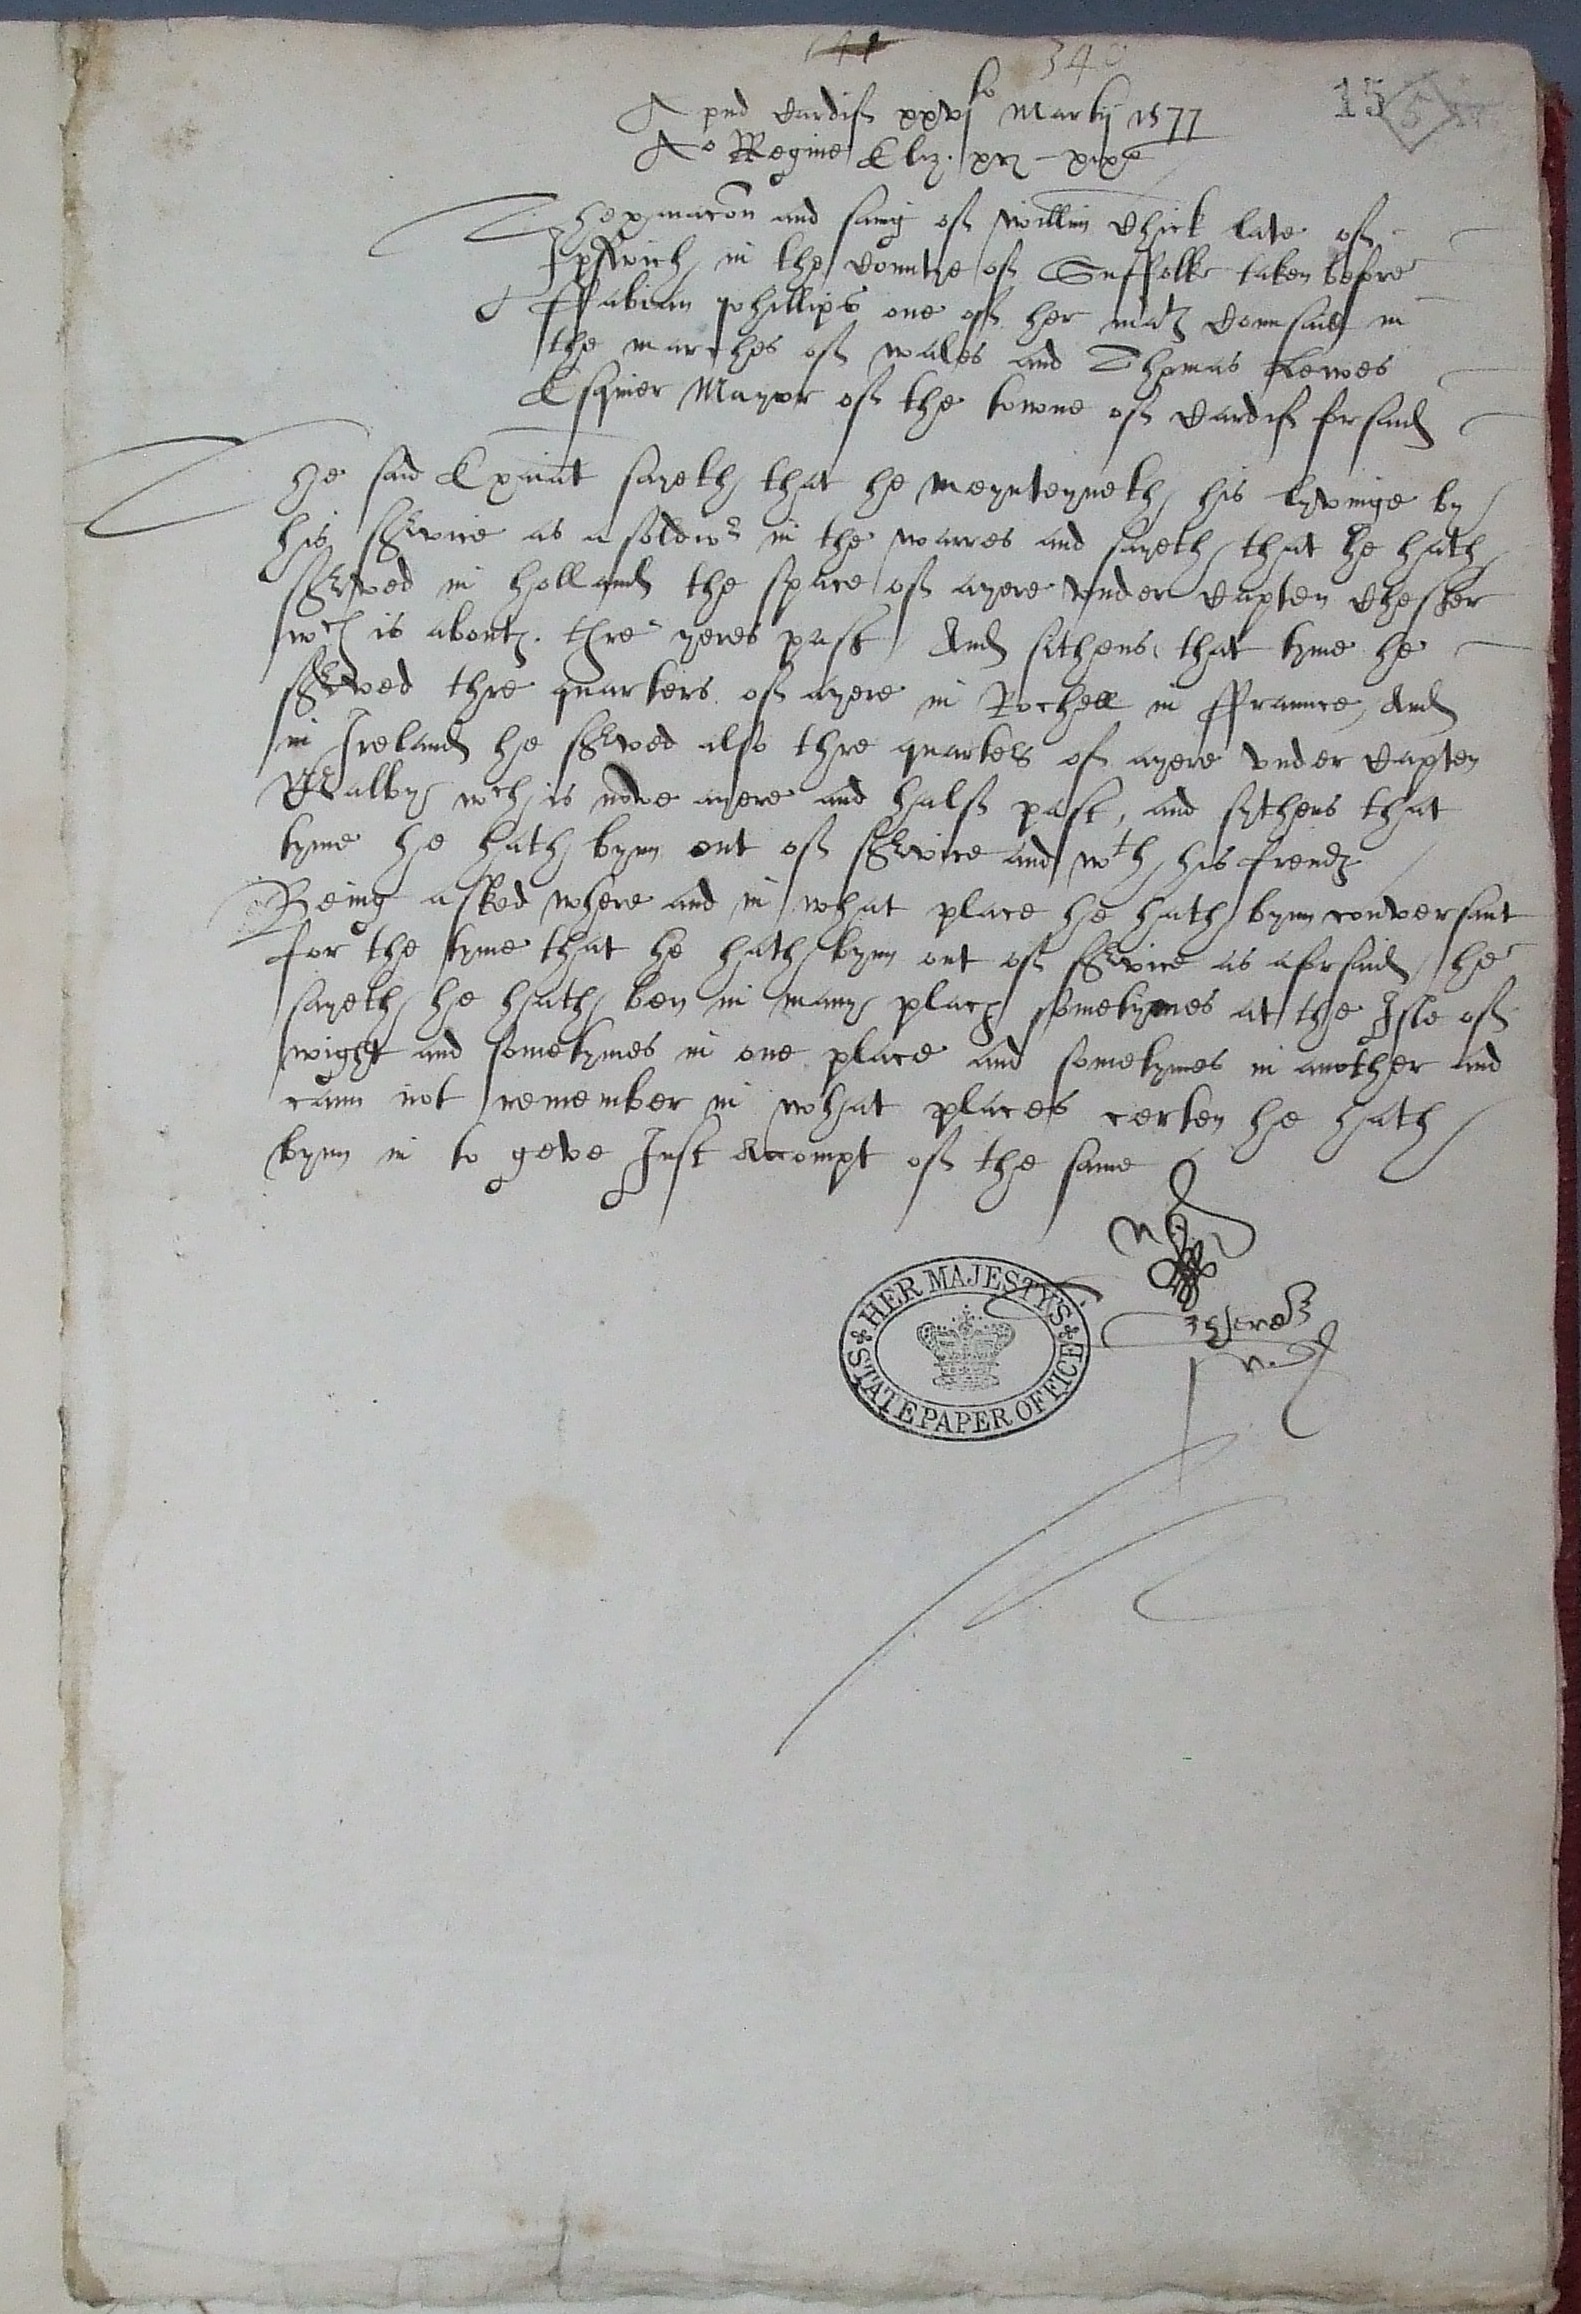 340
15
5
Apud Cardif xxvjto Marty 1577
Ao Regine Eliz. &c. xixo
Thexaiacon and saing of Willim Chick late of
Ipswich in the Countye of Suffolk taken before
ffabian Phillips one of her mats Counsaile in
the marches of wales and Thomas Lewes
Esquier Mayor of the towne of Cardif forsaid
The said Exaiat sayeth that he meynteyneth his lyvinge by
his service as a soldior in the warres and sayeth that he hath
served in Holland the space of a yere vnder Capten Chester
wch is about thre yeres past And sithens that tyme he
served thre quarters of a yere in Rochell in ffraunce, And
in Ireland he served also thre quarters of a yere vnder Capten
Malby wch is nowe a yere and half past, and sythens that
tyme he hath bynn out of service and wth his frends
Being asked where and in what place he hath bynn conversant
for the tyme that he hath bynn out of service as aforsaid he
sayeth he hath ben in many places sometymes at the Isle of
wight and sometymes in one place and sometymes in another and
cann not remember in what places certen he hath
bynn in to geve Just Accompt of the same
HER MAJESTY'S
STATE PAPER OFFICE